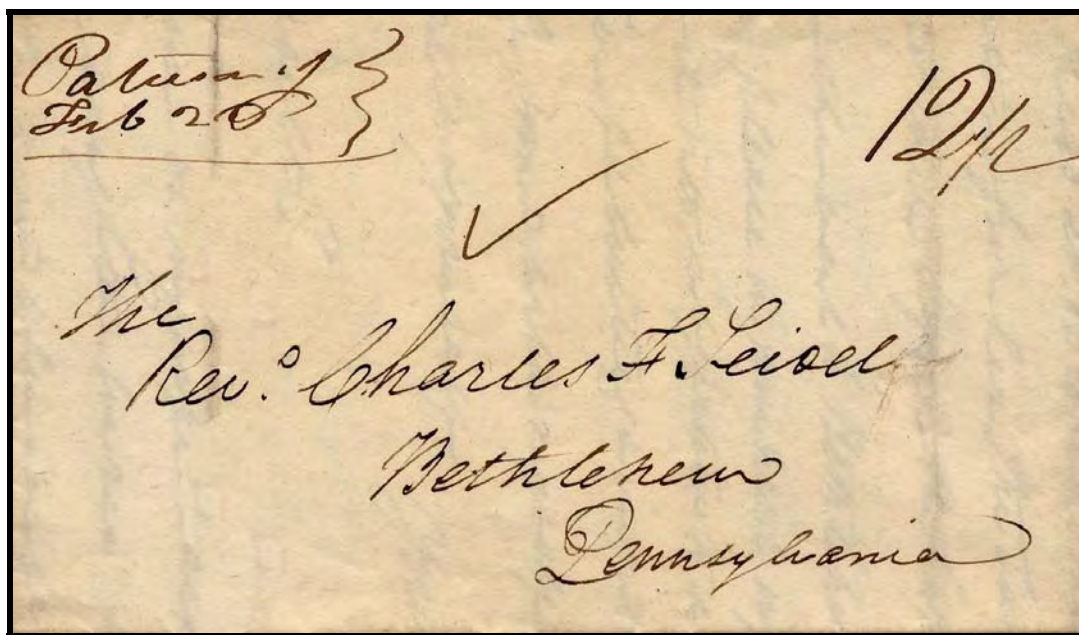 Feb
12 1/2
The
Rev.ᵈ Charles F. Seidel
Bethlehem
Pennsylvania